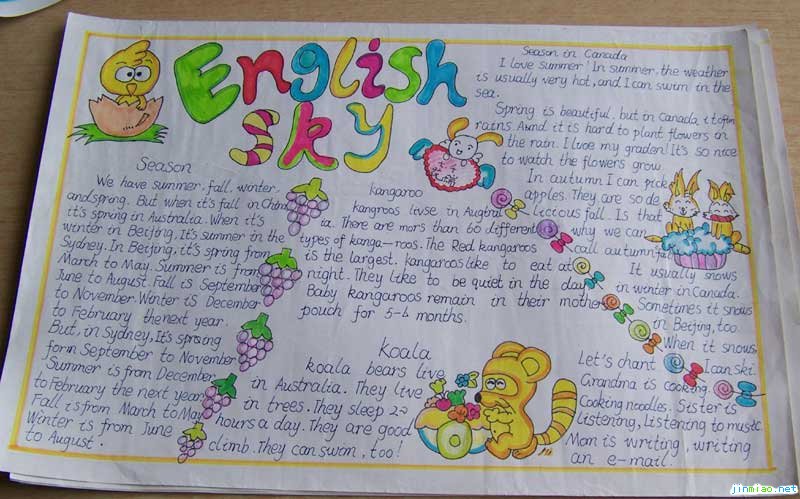 English
sky
Season
We have summer, fall, winter,
and spring. But when it's fall in China
it's spring in Australia. When it's
winter in Beitjing, It's summer in the
Sydney. In Beijing, it's spring from
March to May. Summer is from
June to August. Fall is September
to November. Winter is December
to February the next year.
But, in Sydney, It's spring
form September to November
Summer is from December
to February the next year.
Fall is from March to May
Winter is from June
to August.
kangaroo
kangroos livse in Augtral
ia. There are mors than 60 different
types of kanga-roos. The Red kangaroos
is the largest. kangaroos like to eat at
night. They like to be quiet in the day
Baby kangaroos remain in their mother
pouch for 5-6 months.
Koala
koala bears live
in Australia. They live
in trees. They sleep 20
hours a day. They are good
climb. They can swim, too!
Season in Canada
I love summer! In summer, the weather
is usually very hot, and I can swim in the
sea.
Spring is beautiful, but in Canada it often
rains. And it is hard to plant flowers in
the rain. I lvoe my graden! It's so nice
to watch the flowers grow.
In autumn I can pick
apples. They are so de
licious fall. Is that
why we can
call autumn fall
It usually snows
in winter in Canada.
Sometimes it snows
in Beitjing, too.
When it snows
I can ski.
Let's chant
Grandma is cooking.
Cooking noodles. Sister is
listening, Listening to music
Mon is writing, writing
an e-mail.
jinmiao.net